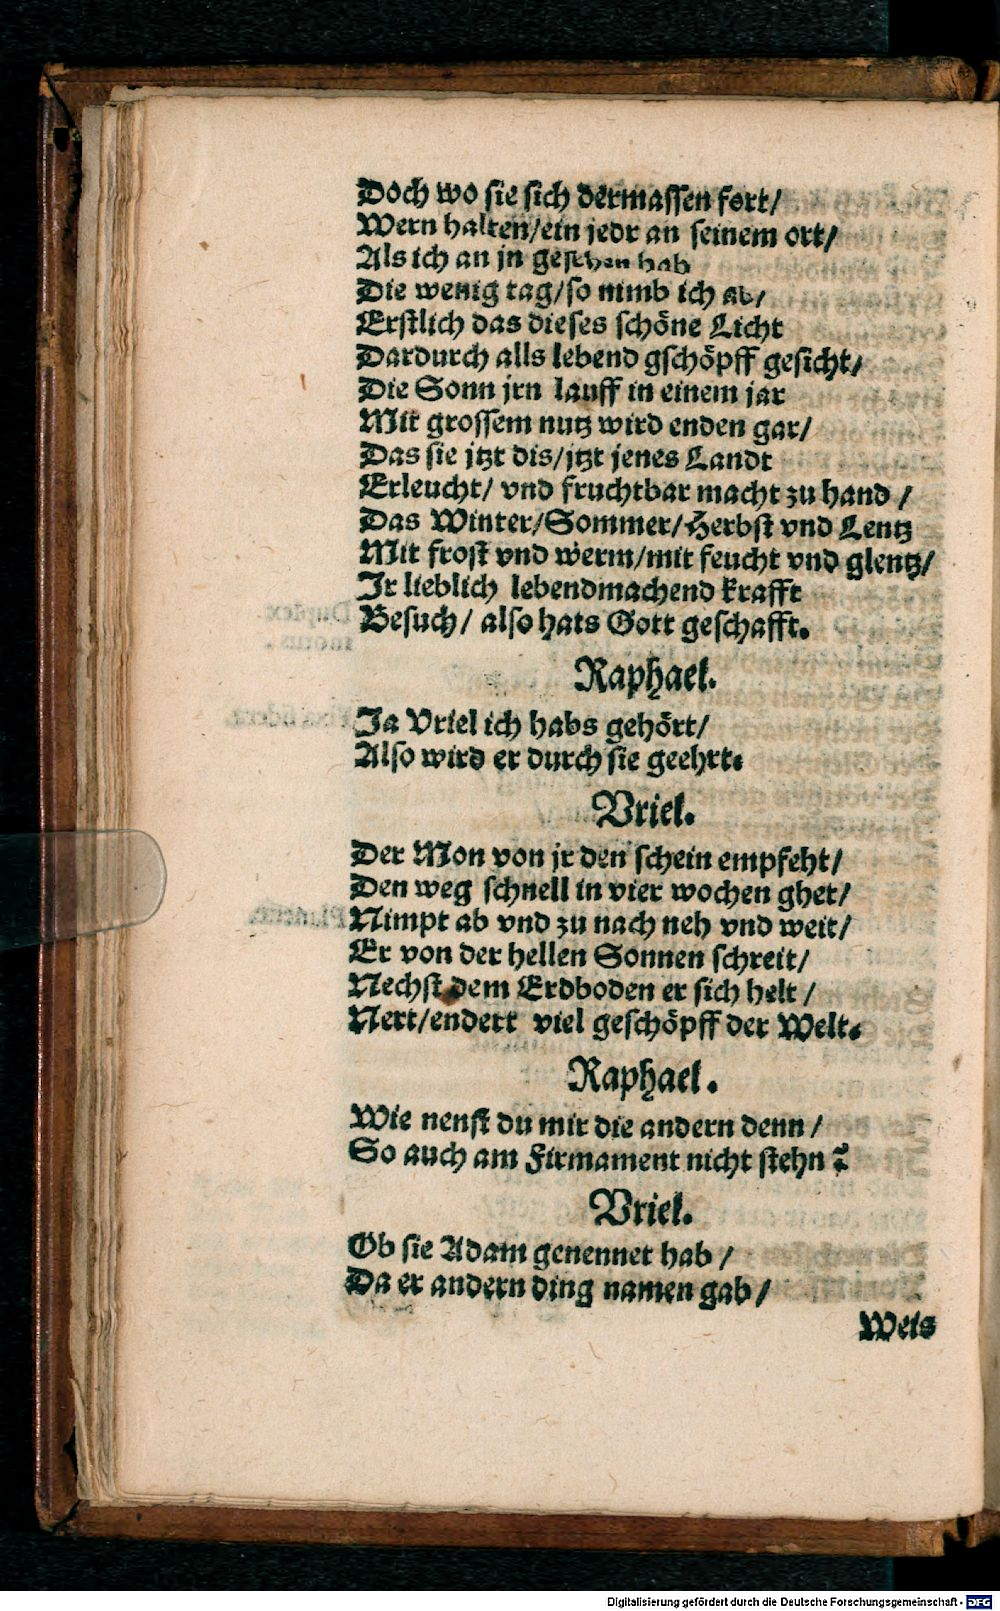 Doch wo sie sich dermassen fort/
Wern halten/ein jedr an seinem ort/
Als ich an jn gesehen hab
Die wenig tag/so nimb ich ab/
Erstlich das dieses schöne Licht
Dardurch alls lebend gschöpff gesicht/
Die Sonn jrn lauff in einem jar
Mit grossem nutz wird enden gar/
Das sie jtzt dis/jtzt jenes Landt
Erleucht/ vnd fruchtbar macht zu hand /
Das Winter/Sommer/Herbst vnd Lentz
Mit frost vnd werm/mit feucht vnd glentz/
Ir lieblich lebendmachend krafft
Besuch/ also hats Gott geschafft.
Raphael.
Ja Vriel ich habs gehört/
Also wird er durch sie geehrt.
Vriel.
Der Mon von jr den schein empfeht/
Den weg schnell in vier wochen ghet/
Nimpt ab vnd zu nach neh vnd weit/
Er von der hellen Sonnen schreit/
Nechst dem Erdboden er sich helt /
Nert/endert viel geschöpff der Welt.
Raphael.
Wie nenst du mir die andern denn /
So auch am Firmament nicht stehn?
Vriel.
Ob sie Adam genennet hab /
Da er andern ding namen gab /
Weis
Digitalisierung gefördert durch die Deutsche Forschungsgemeinschaft - DFG